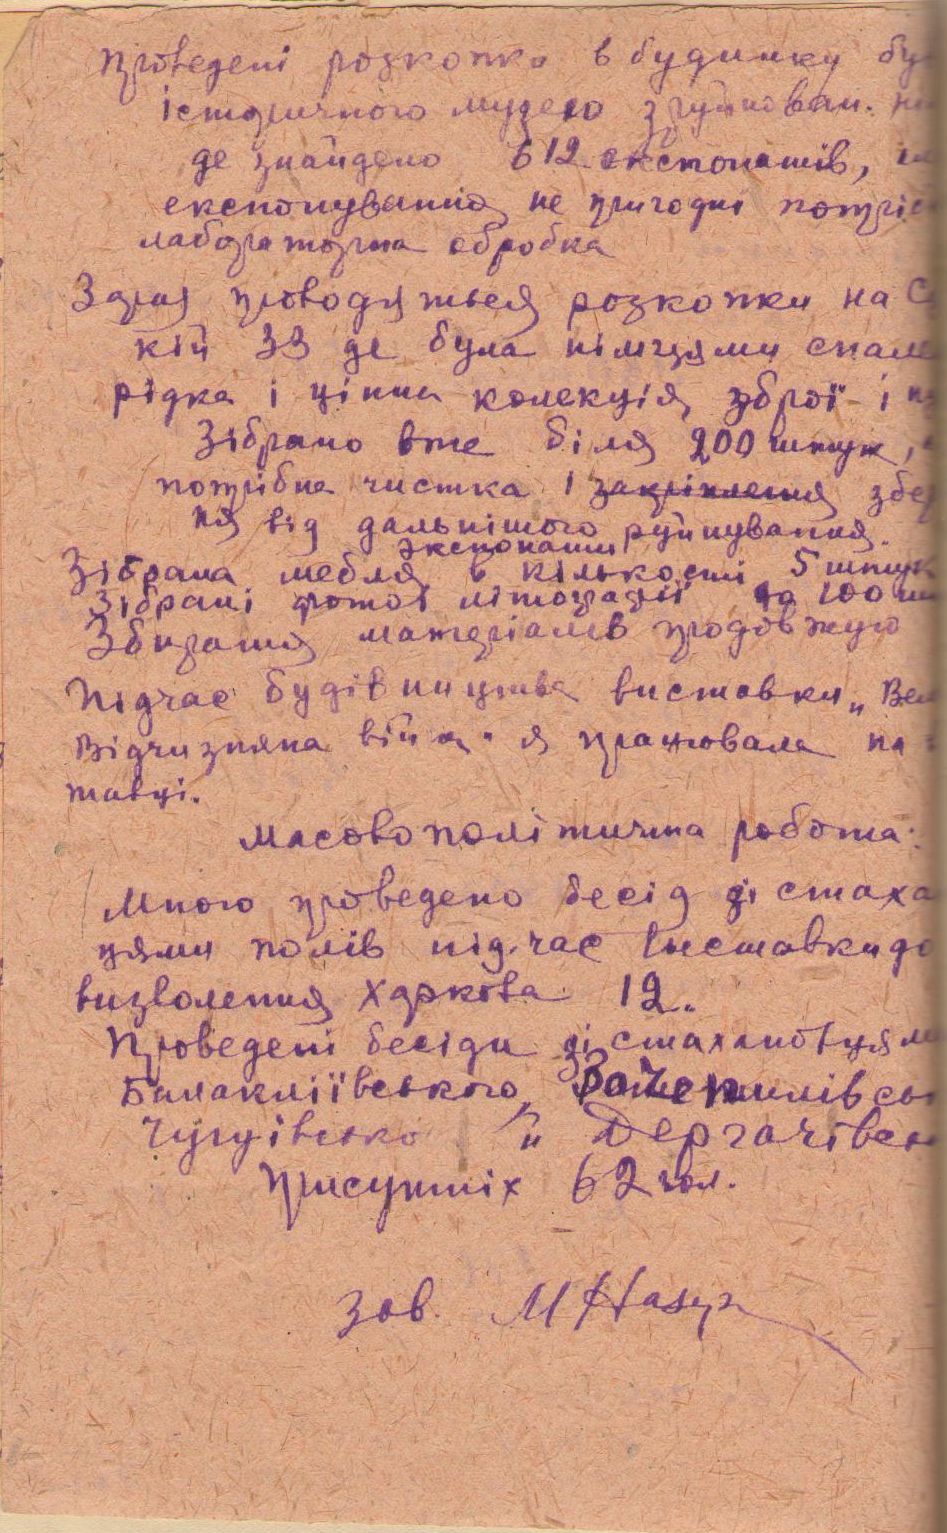 Проведені розкопки в будинку бу
історичного музею зруйнован.
де знайдено 612 експонатів,
експонування не пригодні потріб
лабораторна обробка
Зараз проводяться розкопки на С
кій 33 де була німцями спале
рідка і цінна колекція зброї і
Зібрано вже біля 200 штук,
потрібна чистка і закріплення збе
ня від дальнішого руйнування.
експонати
Зібрана мебля в кількості 5 штук
Зібрані фото і літографії до 100
Збирання матеріалів продовжую
Підчас будівництва виставки „Вел
Відчизняна війна" я працювала на
тавці.
Масовополітична робота:
Мною проведено бесід зі стаха
цями полів під час виставки до
визволення Харкова 12.
Проведені бесіди зі стахановцями
Балакліївського, Зачепилівсь
Чугуївсько й Дергачівсь
Присутніх 62 чол.
Зав. М